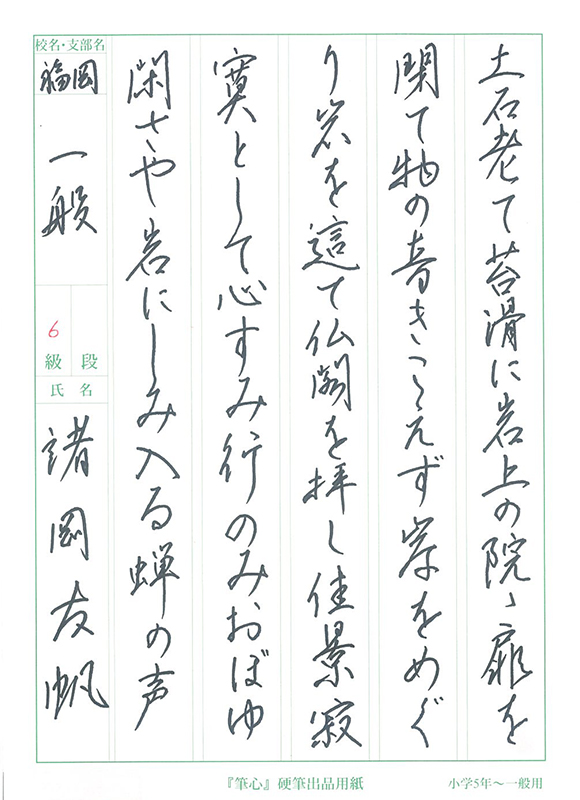 土石老て苔滑に岩上の院ゝ扉を
閉て物の音きこえず岸をめぐ
り岩を這て仏閣を拝し佳景寂
寞として心すみ行のみおぼゆ
閑さや岩にしみ入る蝉の声
校名・支部名
福岡
一般
6
級 段
氏 名
諸岡友帆
『筆心』硬筆出品用紙
小学5年〜一般用